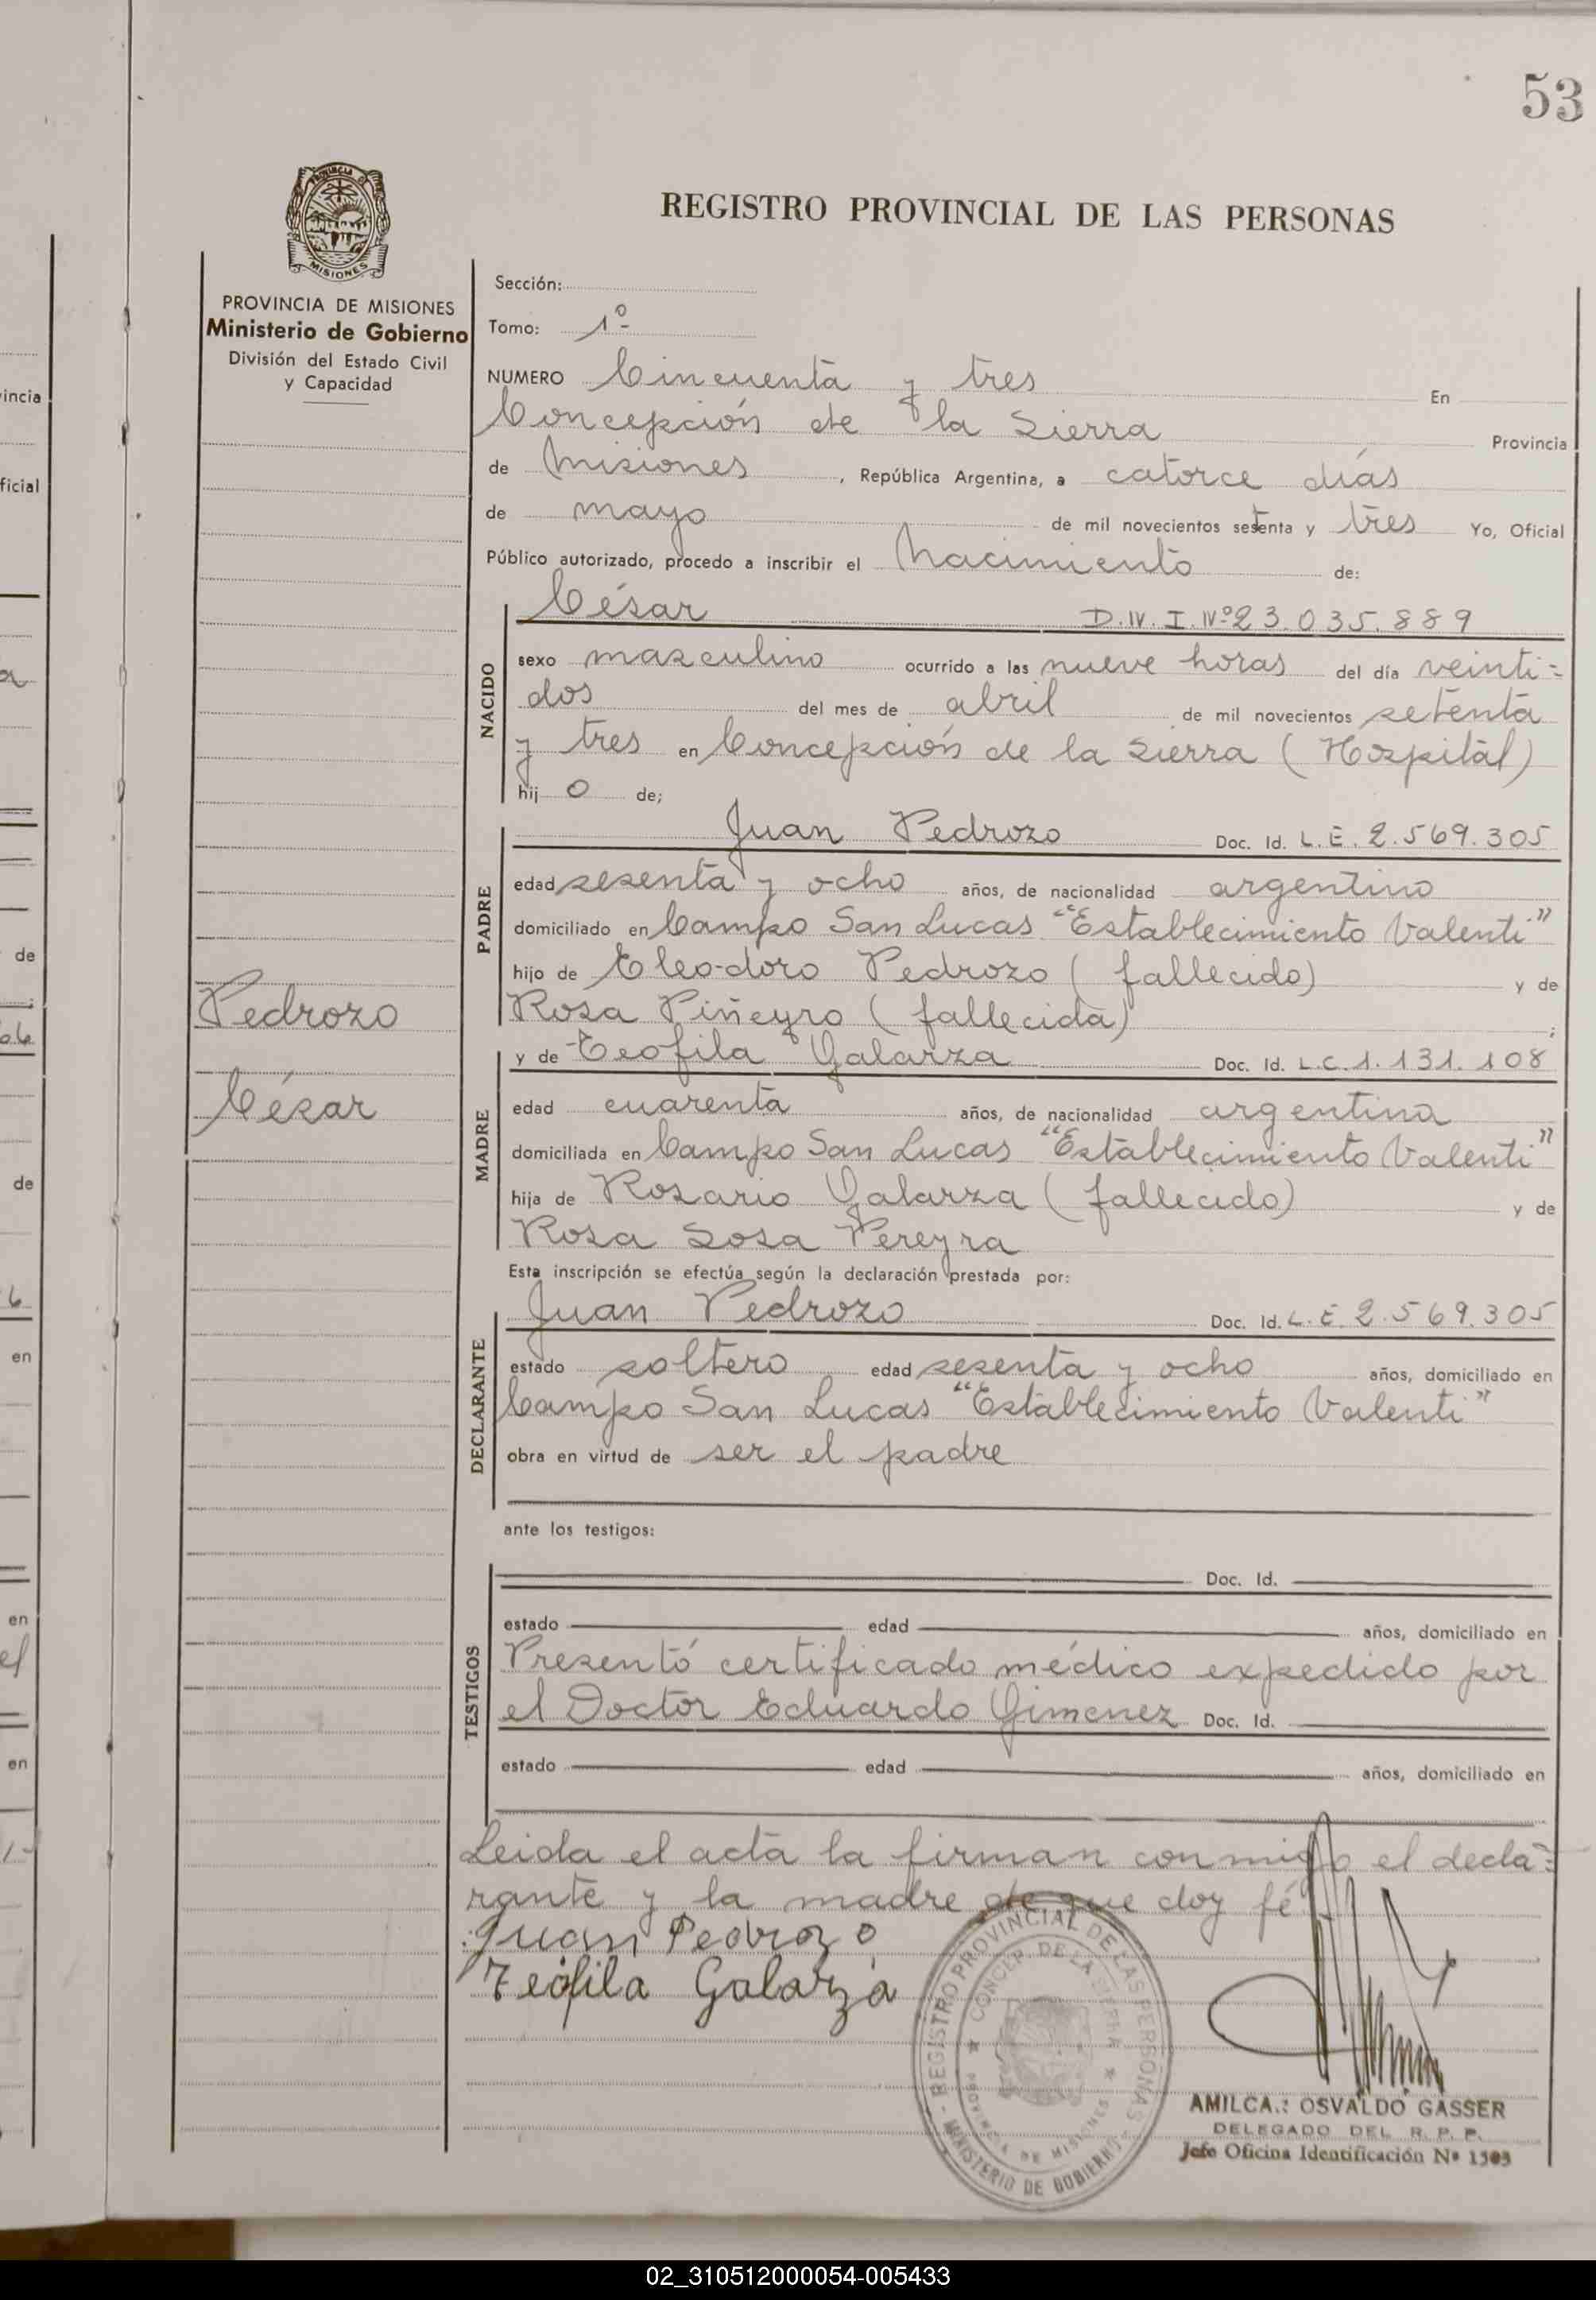 53
PROVINCIA DE
MISIONES
PROVINCIA DE MISIONES
Ministerio de Gobierno
División del Estado Civil
y Capacidad
Pedrozo
César
REGISTRO PROVINCIAL DE LAS PERSONAS
Sección:
Tomo: 1º
NUMERO Cincuenta y tres En
Concepción de la Sierra Provincia
de Misiones, República Argentina, a catorce días
de mayo de mil novecientos setenta y tres Yo, Oficial
Público autorizado, procedo a inscribir el Nacimiento de:
NACIDO
César D.N.I. Nº 23.035.889
sexo masculino ocurrido a las nueve horas del día veinti=
dos del mes de abril de mil novecientos setenta
y tres en Concepción de la Sierra (Hospital)
hij o de;
PADRE
Juan Pedrozo Doc. Id. L.E. 2.569.305
edad sesenta y ocho años, de nacionalidad argentino
domiciliado en Campo San Lucas "Establecimiento Valenti"
hijo de Eleodoro Pedrozo (fallecido) y de
Rosa Piñeyro (fallecida) ;
MADRE
y de Teofila Galarza Doc. Id. L.C. 1.131.108
edad cuarenta años, de nacionalidad argentina
domiciliada en Campo San Lucas "Establecimiento Valenti"
hija de Rosario Galarza (fallecido) y de
Rosa Sosa Pereyra
Esta inscripción se efectúa según la declaración prestada por:
DECLARANTE
Juan Pedrozo Doc. Id. L.E. 2.569.305
estado soltero edad sesenta y ocho años, domiciliado en
Campo San Lucas "Establecimiento Valenti"
obra en virtud de ser el padre
ante los testigos:
TESTIGOS
Doc. Id.
estado edad años, domiciliado en
Presentó certificado médico expedido por
el Doctor Eduardo Gimenez Doc. Id.
estado edad años, domiciliado en
Leida el acta la firman conmigo el decla=
rante y la madre de que doy fé
Juan Pedrozo
Teófila Galarza
REGISTRO PROVINCIAL DE LAS PERSONAS
MINISTERIO DE GOBIERNO
CONCEP. DE LA SIERRA
PROVINCIA DE MISIONES
AMILCA.: OSVALDO GASSER
DELEGADO DEL R. P. P.
Jefe Oficina Identificación Nº 1503
vincia
ficial
de
de
en
en
el
en
02_310512000054-005433